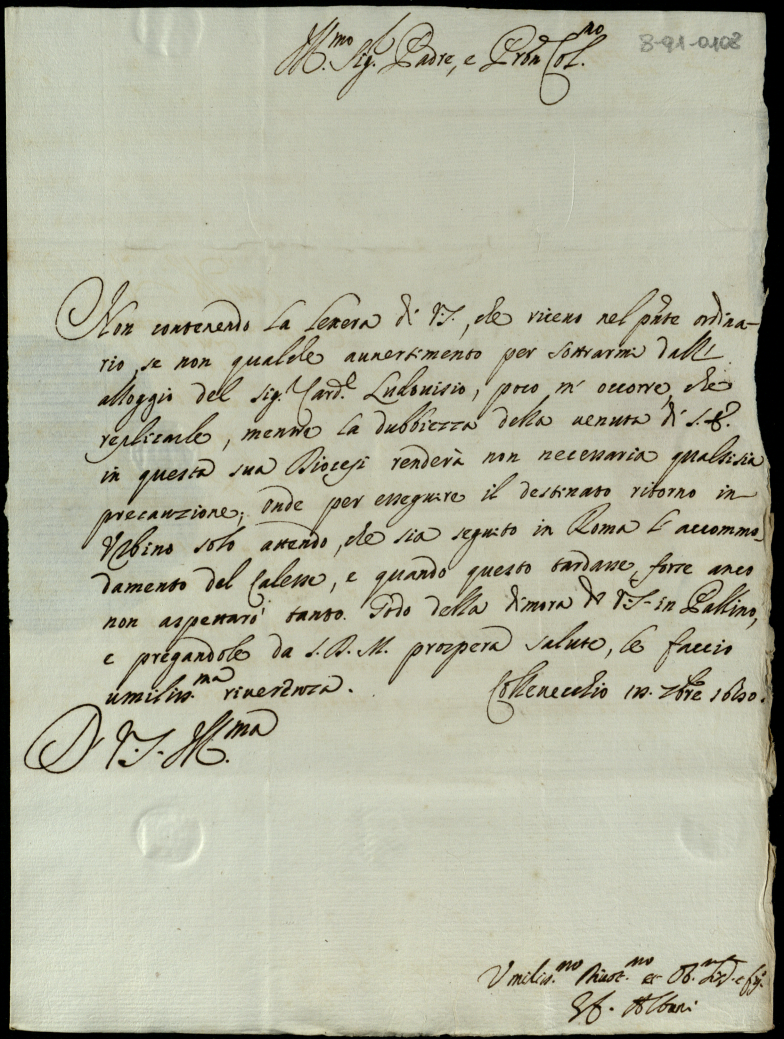 8-91-0108
Ill.mo Sig.r Padre, e Pron Col.mo
Non contenendo la lettera di V.S., che riceuo nel pñte ordina-
rio, se non qualche auuertimento per sottrarmi dall'
alloggio del Sig.r Card.l Ludouisio, poco m'occorre, che
replicarle, mentre la dubbiezza della uenuta di S.E.
in questa sua Diocesi renderà non necessaria qualsisia
precauzione; onde per esseguire il destinato ritorno in
Vrbino solo attendo, che sia seguito in Roma l'accommo-
damento del Calesse, e quando questo tardasse, forse anco
non aspettarò tanto. Godo della dimora di V.S. in Gallino,
e pregandole da S.D.M. prospera salute, le faccio
umiliss.ma riuerenza. Colleuecchio 7bre
Di V.S. Ill.ma
Vmiliss.mo Diuot.mo et Ob.
Albani